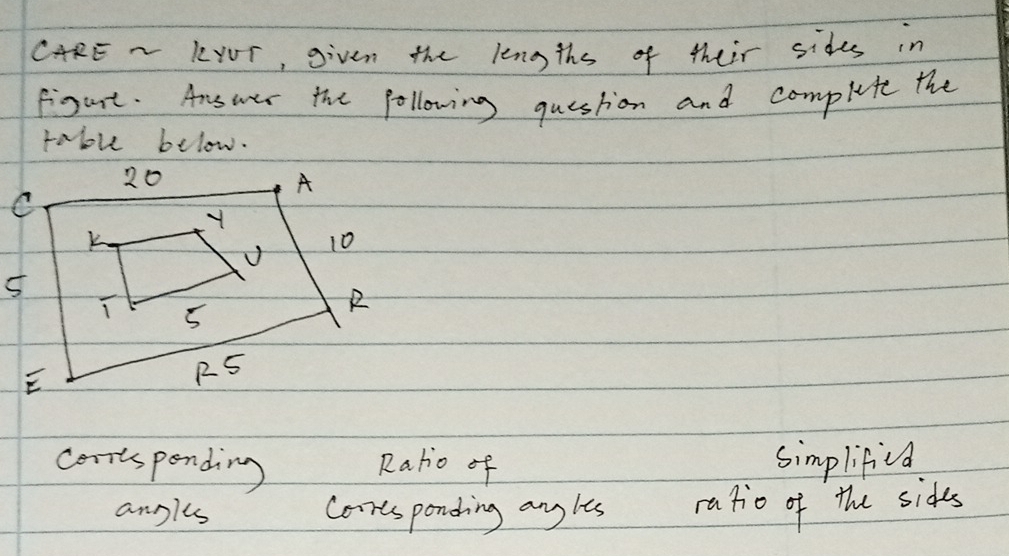 CARE ~ KYUT, given the lengths of their sides in
figure. Answer the following question and complete the
table below.
20
C A
K Y
10
U
5
T
5
R
E
R5
Corresponding Ratio of Simplified
angles Corresponding angles ratio of the sides